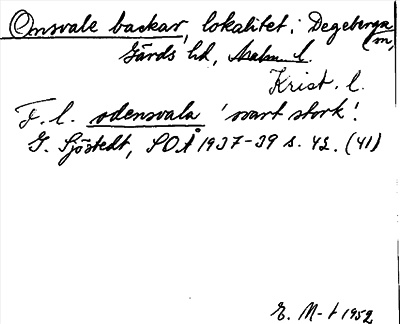 Onsvale backar, lokalitet i Degeberga
(m)
Gärds hd, Malm. l.
Krist. l.
F. l. odensvala 'svart stork'.
G. Sjöstedt, SOÅ 1937-39 s. 42. (41)
E. M-t 1952